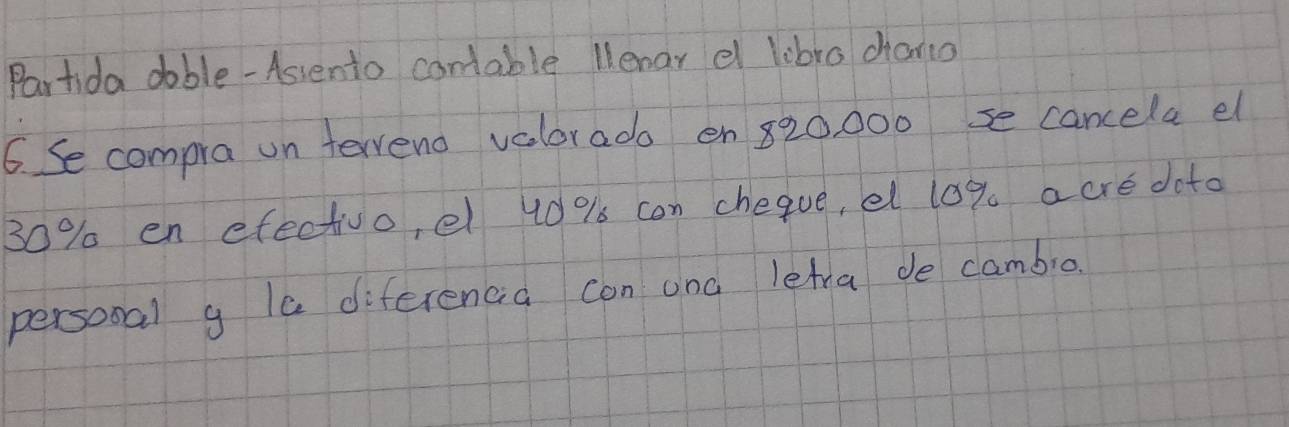 Partida doble - Asiento contable llenar el libro diario
6. Se compra un terreno valorado en $20.000 se cancela el
30% en efectivo, el 40% con cheque, el 10% a crédito
personal y la diferencia con una letra de cambio.